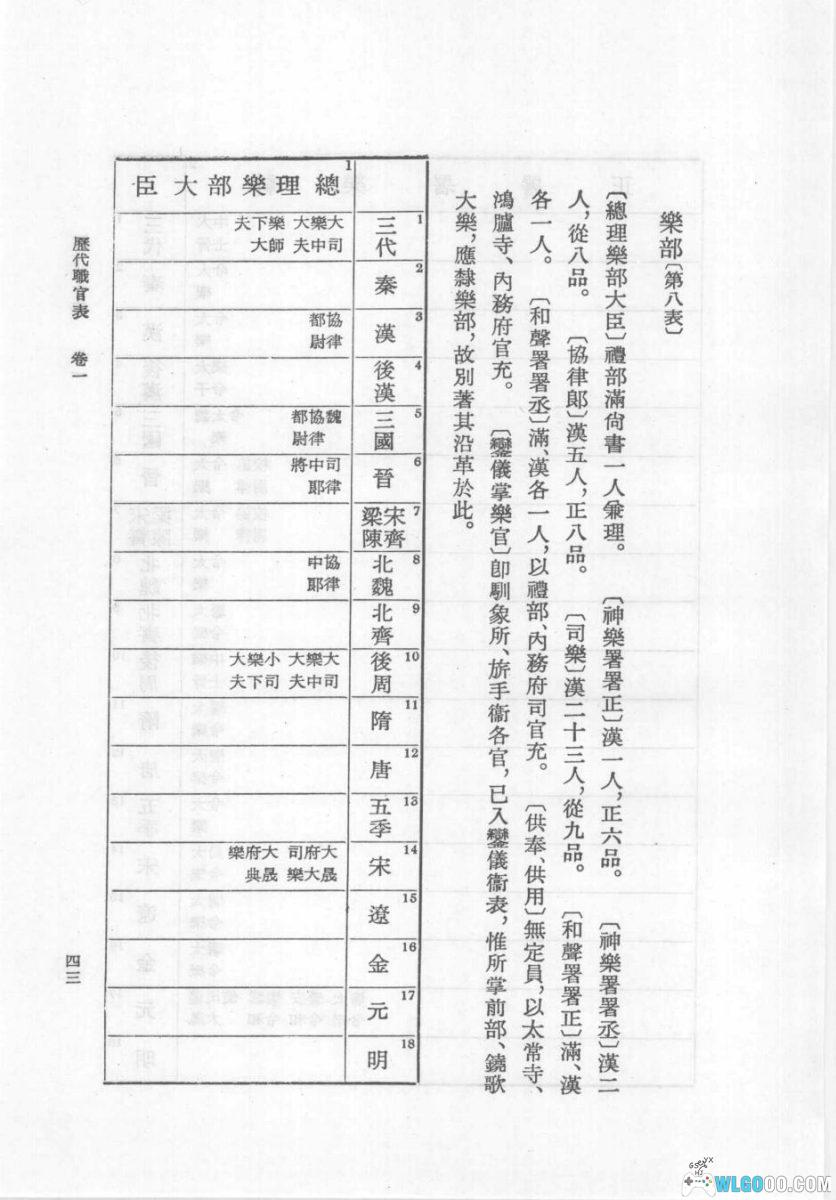 樂部〔第八表〕
〔總理樂部大臣〕禮部滿尙書一人兼理。　〔神樂署署正〕漢一人，正六品。　〔神樂署署丞〕漢二
人，從八品。　〔協律郎〕漢五人，正八品。　〔司樂〕漢二十三人，從九品。　〔和聲署署正〕滿、漢
各一人。　〔和聲署署丞〕滿、漢各一人，以禮部、內務府司官充。　〔供奉、供用〕無定員，以太常寺、
鴻臚寺、內務府官充。　〔鑾儀掌樂官〕卽馴象所、旂手衞各官，已入鑾儀衞表，惟所掌前部、鐃歌
大樂，應隸樂部，故別著其沿革於此。
1 總理樂部大臣
1 三代 大司樂中大夫 樂師下大夫
2 秦
3 漢 協律都尉
4 後漢
5 三國 魏協律都尉
6 晉 司律中郎將
7 宋齊梁陳
8 北魏 協律中郎
9 北齊
10 後周 大司樂中大夫 小司樂下大夫
11 隋
12 唐
13 五季
14 宋 大晟府大司樂 大晟府典樂
15 遼
16 金
17 元
18 明
歷代職官表　卷一
四三
WLGOOO.COM